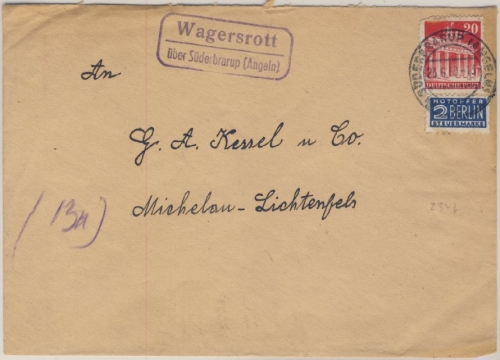 Wagersrott
über Süderbrarup (Angeln)
20
DEUTSCHE POST
SÜDERBRARUP (ANGELN)
NOTOPFER
2 BERLIN
STEUERMARKE
An
G. A. Kessel u Co.
Michelau - Lichtenfels
(13a)